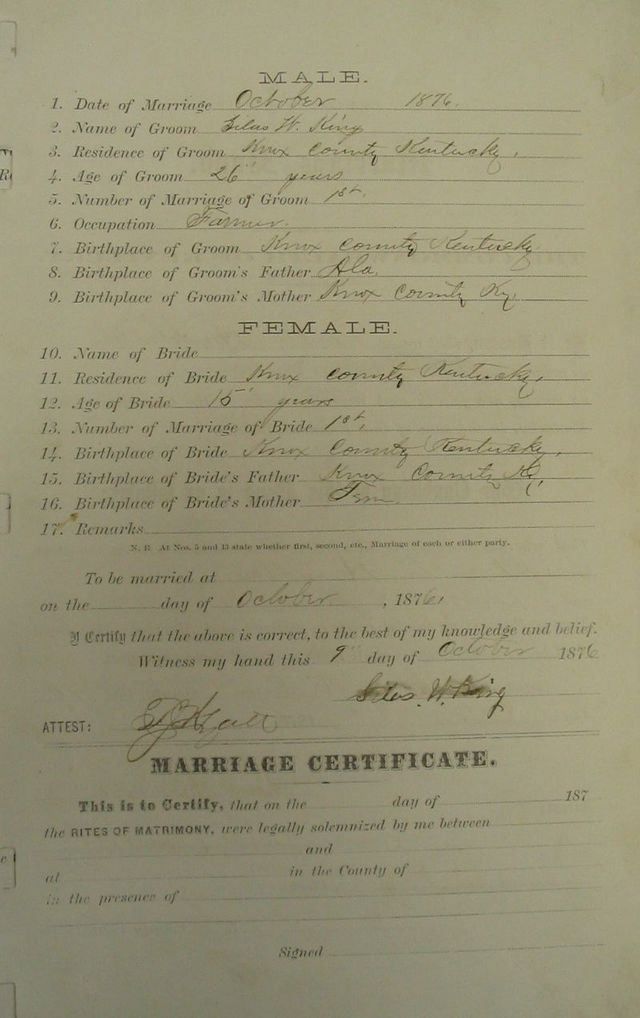 MALE.
1. Date of Marriage October 1876.
2. Name of Groom Silas W. King
3. Residence of Groom Knox County Kentucky.
4. Age of Groom 26 years
5. Number of Marriage of Groom 1st.
6. Occupation Farmer.
7. Birthplace of Groom Knox County Kentucky.
8. Birthplace of Groom's Father Ala.
9. Birthplace of Groom's Mother Knox County Ky.
FEMALE.
10. Name of Bride
11. Residence of Bride Knox County Kentucky.
12. Age of Bride 15 years
13. Number of Marriage of Bride 1st.
14. Birthplace of Bride Knox County Kentucky.
15. Birthplace of Bride's Father Knox County Ky.
16. Birthplace of Bride's Mother Tenn
17. Remarks
N. B. At Nos. 5 and 13 state whether first, second, etc., Marriage of each or either party.
To be married at
on the day of October, 1876.
I Certify that the above is correct, to the best of my knowledge and belief.
Witness my hand this 9" day of October 1876
Silas. W. King
ATTEST:
MARRIAGE CERTIFICATE.
This is to Certify, that on the day of 187
the RITES OF MATRIMONY, were legally solemnized by me between
and
at in the County of
in the presence of
Signed